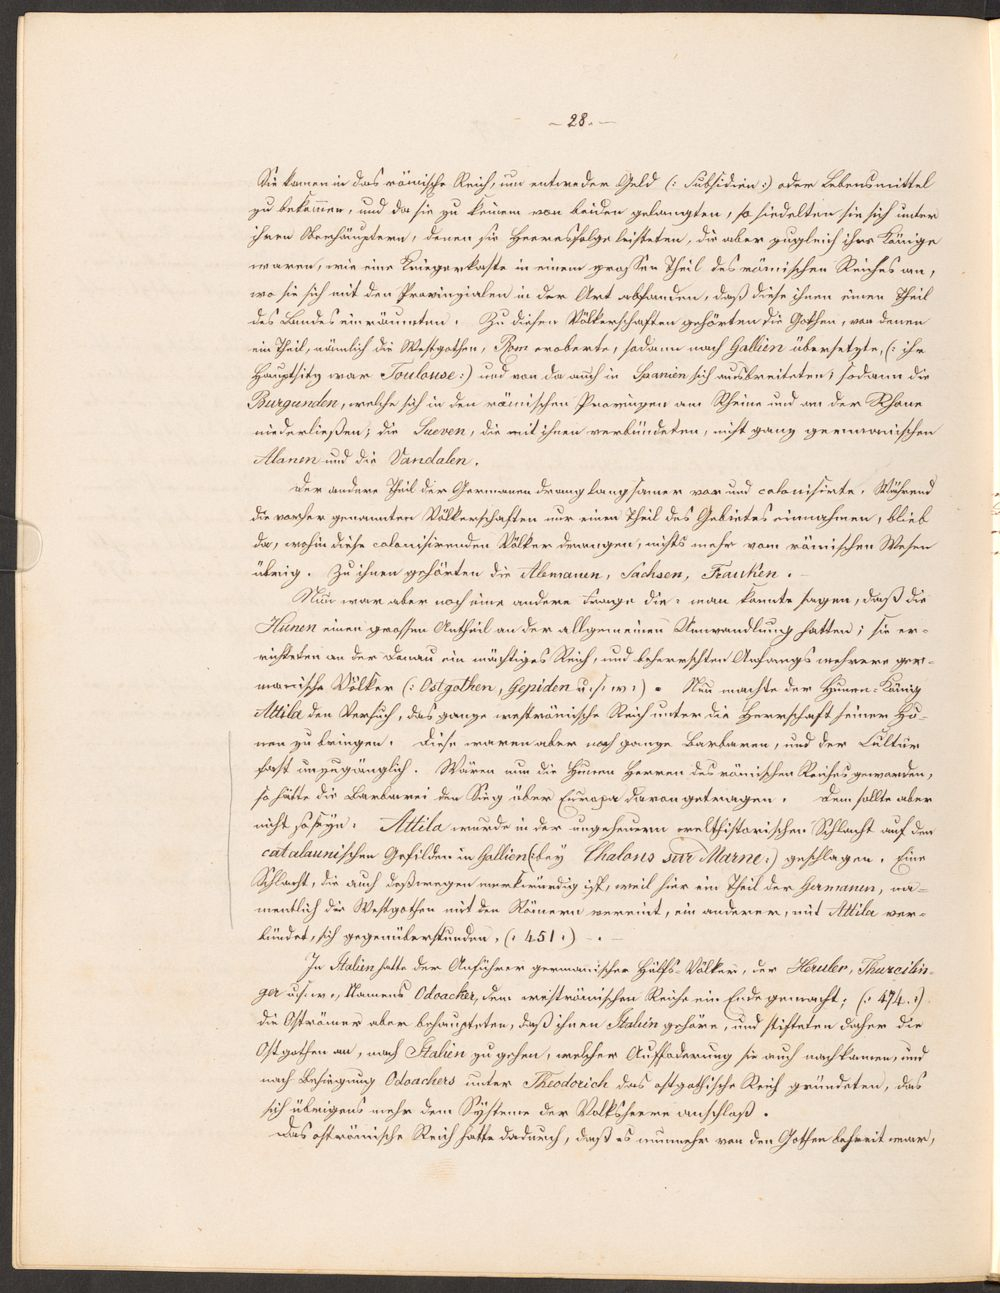 – 28. –
Sie kamen in das römische Reich, um entweder Geld (: Subsidien :) oder Lebensmittel
zu bekommen, und da sie zu keinem von beiden gelangten, so siedelten sie sich unter
ihren Oberhäuptern, denen sie Heeresfolge leisteten, die aber zugleich ihre Könige
waren, wie eine Kriegerkaste in einem grossen Theil des römischen Reiches an,
wo sie sich mit den Provinzialen in der Art abfanden, daß diese ihnen einen Theil
des Landes einräumten. Zu diesen Völkerschaften gehörten die Gothen, von denen
ein Theil, nämlich die Westgothen, Rom eroberte, sodann nach Gallien übersetzte, (: ihr
Hauptsitz war Toulouse :) und von da auch in Spanien sich ausbreiteten; sodann die
Burgunden, welche sich in den römischen Provinzen am Rheine und an der Rhone
niederließen; die Sueven, die mit ihnen verbündeten, nicht ganz germanischen
Alanen und die Vandalen.
Der andere Theil der Germanen drang langsamer vor und colonisirte. Während
die vorher genannten Völkerschaften nur einen Theil des Gebietes einnahmen, blieb
da, wohin diese colonisirenden Völker drangen, nichts mehr vom römischen Wesen
übrig. Zu ihnen gehörten die Alemanen, Sachsen, Franken.
Nun war aber noch eine andere Frage die: man konnte sagen, daß die
Hunen einen grossen Antheil an der allgemeinen Umwandlung hatten; sie er-
richteten an der Donau ein mächtiges Reich, und beherrschten Anfangs mehrere ger-
manische Völker (: Ostgothen, Gepiden u. s. w :). Nun machte der Hunen-König
Attila den Versuch, das ganze weströmische Reich unter die Herrschaft seiner Hu-
nen zu bringen. Diese waren aber noch ganze Barbaren, und der Cultur
fast unzugänglich. Wären nun die Hunen Herren des römischen Reiches geworden,
so hätte die Barbarei den Sieg über Europa davongetragen. Dem sollte aber
nicht so seyn. Attila wurde in der ungeheuern welthistorischen Schlacht auf den
catalaunischen Gefilden in Gallien (: bey Chalons sur Marne :) geschlagen. Eine
Schlacht, die auch deßwegen merkwürdig ist, weil hier ein Theil der Germanen, na-
mentlich die Westgothen mit den Römern vereint, ein anderer, mit Attila ver-
bündet, sich gegenüberstunden, (: 451 :) –.–
In Italien hatte der Anführer germanischer Hülfs-Völker, der Heruler, Thurcilin-
ger u. s. w., Namens Odoacker, dem weströmischen Reiche ein Ende gemacht; (: 474. :)
die Oströmer aber behaupteten, daß ihnen Italien gehöre, und stifteten daher die
Ostgothen an, nach Italien zu gehen, welcher Auffoderung sie auch nachkamen, und
nach Besiegung Odoachers unter Theodorich das ostgothische Reich gründeten, das
sich übrigens mehr dem Systeme der Volksheere anschloß.
Das oströmische Reich hatte dadurch, daß es nunmehr von den Gothen befreit war,